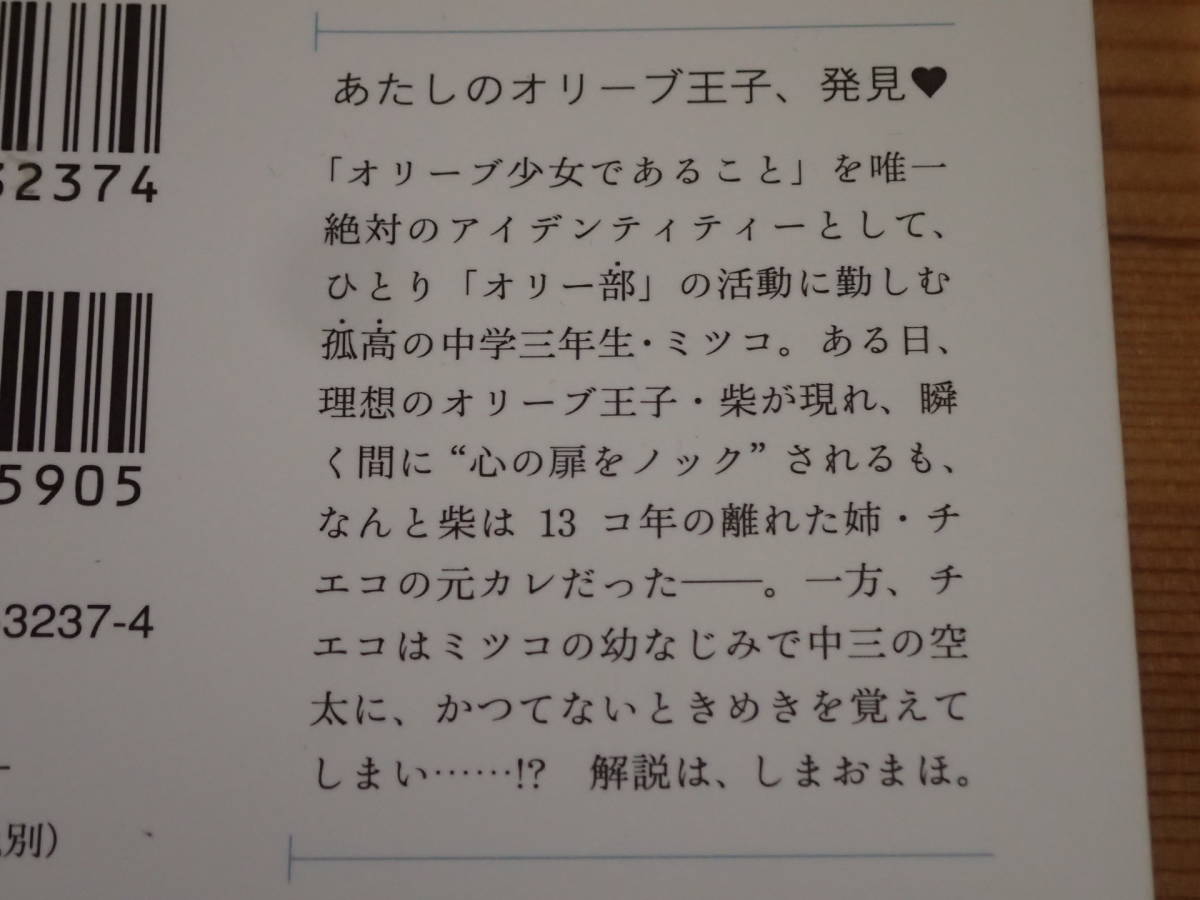 32374
5905
3237-4
別）
あたしのオリーブ王子、発見♥
「オリーブ少女であること」を唯一
絶対のアイデンティティーとして、
ひとり「オリー部」の活動に勤しむ
孤高の中学三年生・ミツコ。ある日、
理想のオリーブ王子・柴が現れ、瞬
く間に“心の扉をノック”されるも、
なんと柴は 13 コ年の離れた姉・チ
エコの元カレだった――。一方、チ
エコはミツコの幼なじみで中三の空
太に、かつてないときめきを覚えて
しまい……!?　解説は、しまおまほ。